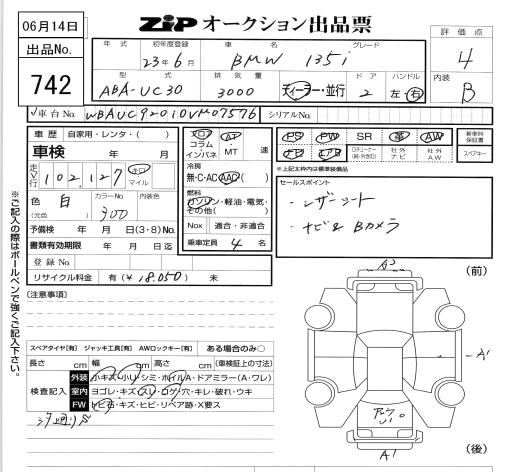 06月14日
ZiP オークション出品票
出品No.
742
年式 初年度登録 車名 グレード
23年6月 BMW 135i
型式 排気量 ドア ハンドル
ABA-UC30 3000 ディーラー・並行 2 左・右
評価点
4
内装
B
車台No. WBAUC92010VM07576 シリアルNo.
車歴 自家用・レンタ・( )
車検 年 月
走行 102,127 キロ マイル
色 白 カラーNo. 300 内装色
(元色)
予備検 年 月 日(3・8)No.
書類有効期限 年 月 日迄
登録No.
リサイクル料金 有(¥18,050) 未
フロア AT 速
コラム
インパネ ・MT
冷房
無・C・AC・AAC
燃料
ガソリン・軽油・電気・
その他( )
Nox 適合・非適合
乗車定員 4 名
PS PW SR 革 AW 新車時保証書
社外ナビ 社外AW スペアキー
※上記太枠内は標準装備品
セールスポイント
・レザーシート
・ナビ&Bカメラ
※ご記入の際はボールペンで強くご記入下さい。
(注意事項)
スペアタイヤ[有] ジャッキ工具[有] AWロックキー[有] ある場合のみ○
長さ cm 幅 cm 高さ cm (車検証上の寸法)
検査記入
外装 小キズ・小リ・シミ・ホイルA・ドアミラー(A・ワレ)
室内 ヨゴレ・キズ・スレ・コゲ・穴・キレ・破れ・ウキ
FW トビ石・キズ・ヒビ・リペア跡・X要ス
(前)
A1
A1
(後)